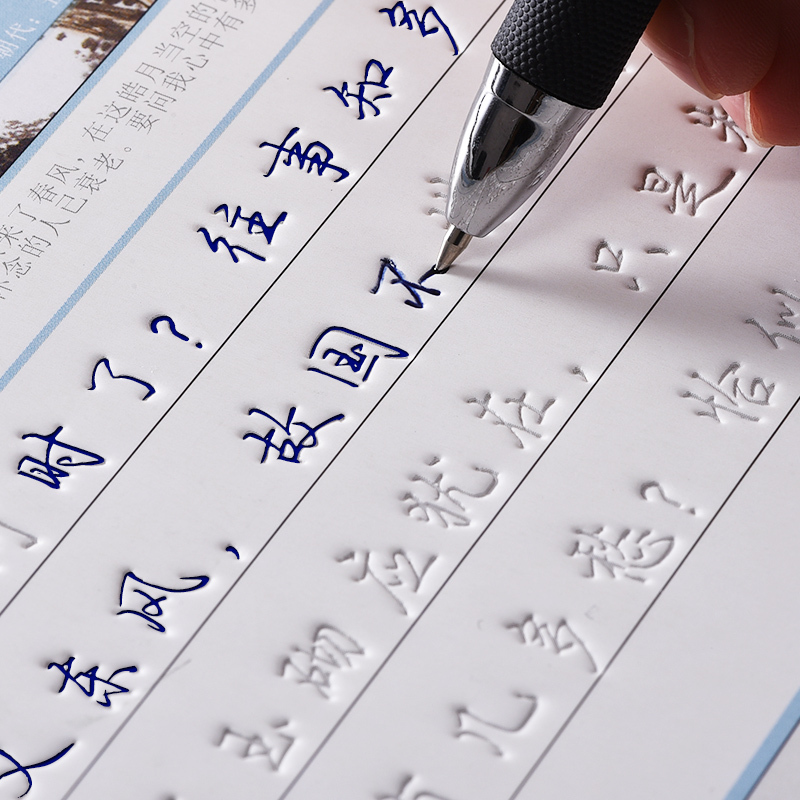 朝代:
来了春风，在这皓月当空的
念的人已衰老。要问我心中有多
时了？往事知多
又东风，故国不
玉砌应犹在，只是朱
几多愁？恰似